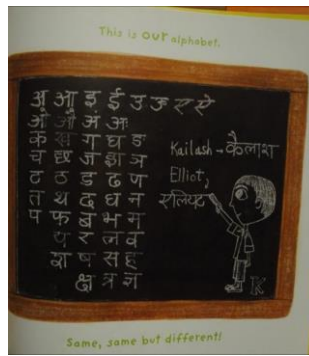 This is our alphabet.
अ आ इ ई उ ऊ ए ऐ
ओ औ अं अः
क ख ग घ ङ
च छ ज झ ञ
ट ठ ड ढ ण
त थ द ध न
प फ ब भ म
य र ल व
श ष स ह
क्ष त्र ज्ञ
Kailash → कैलाश
Elliot,
एलियट
K
Same, same but different!